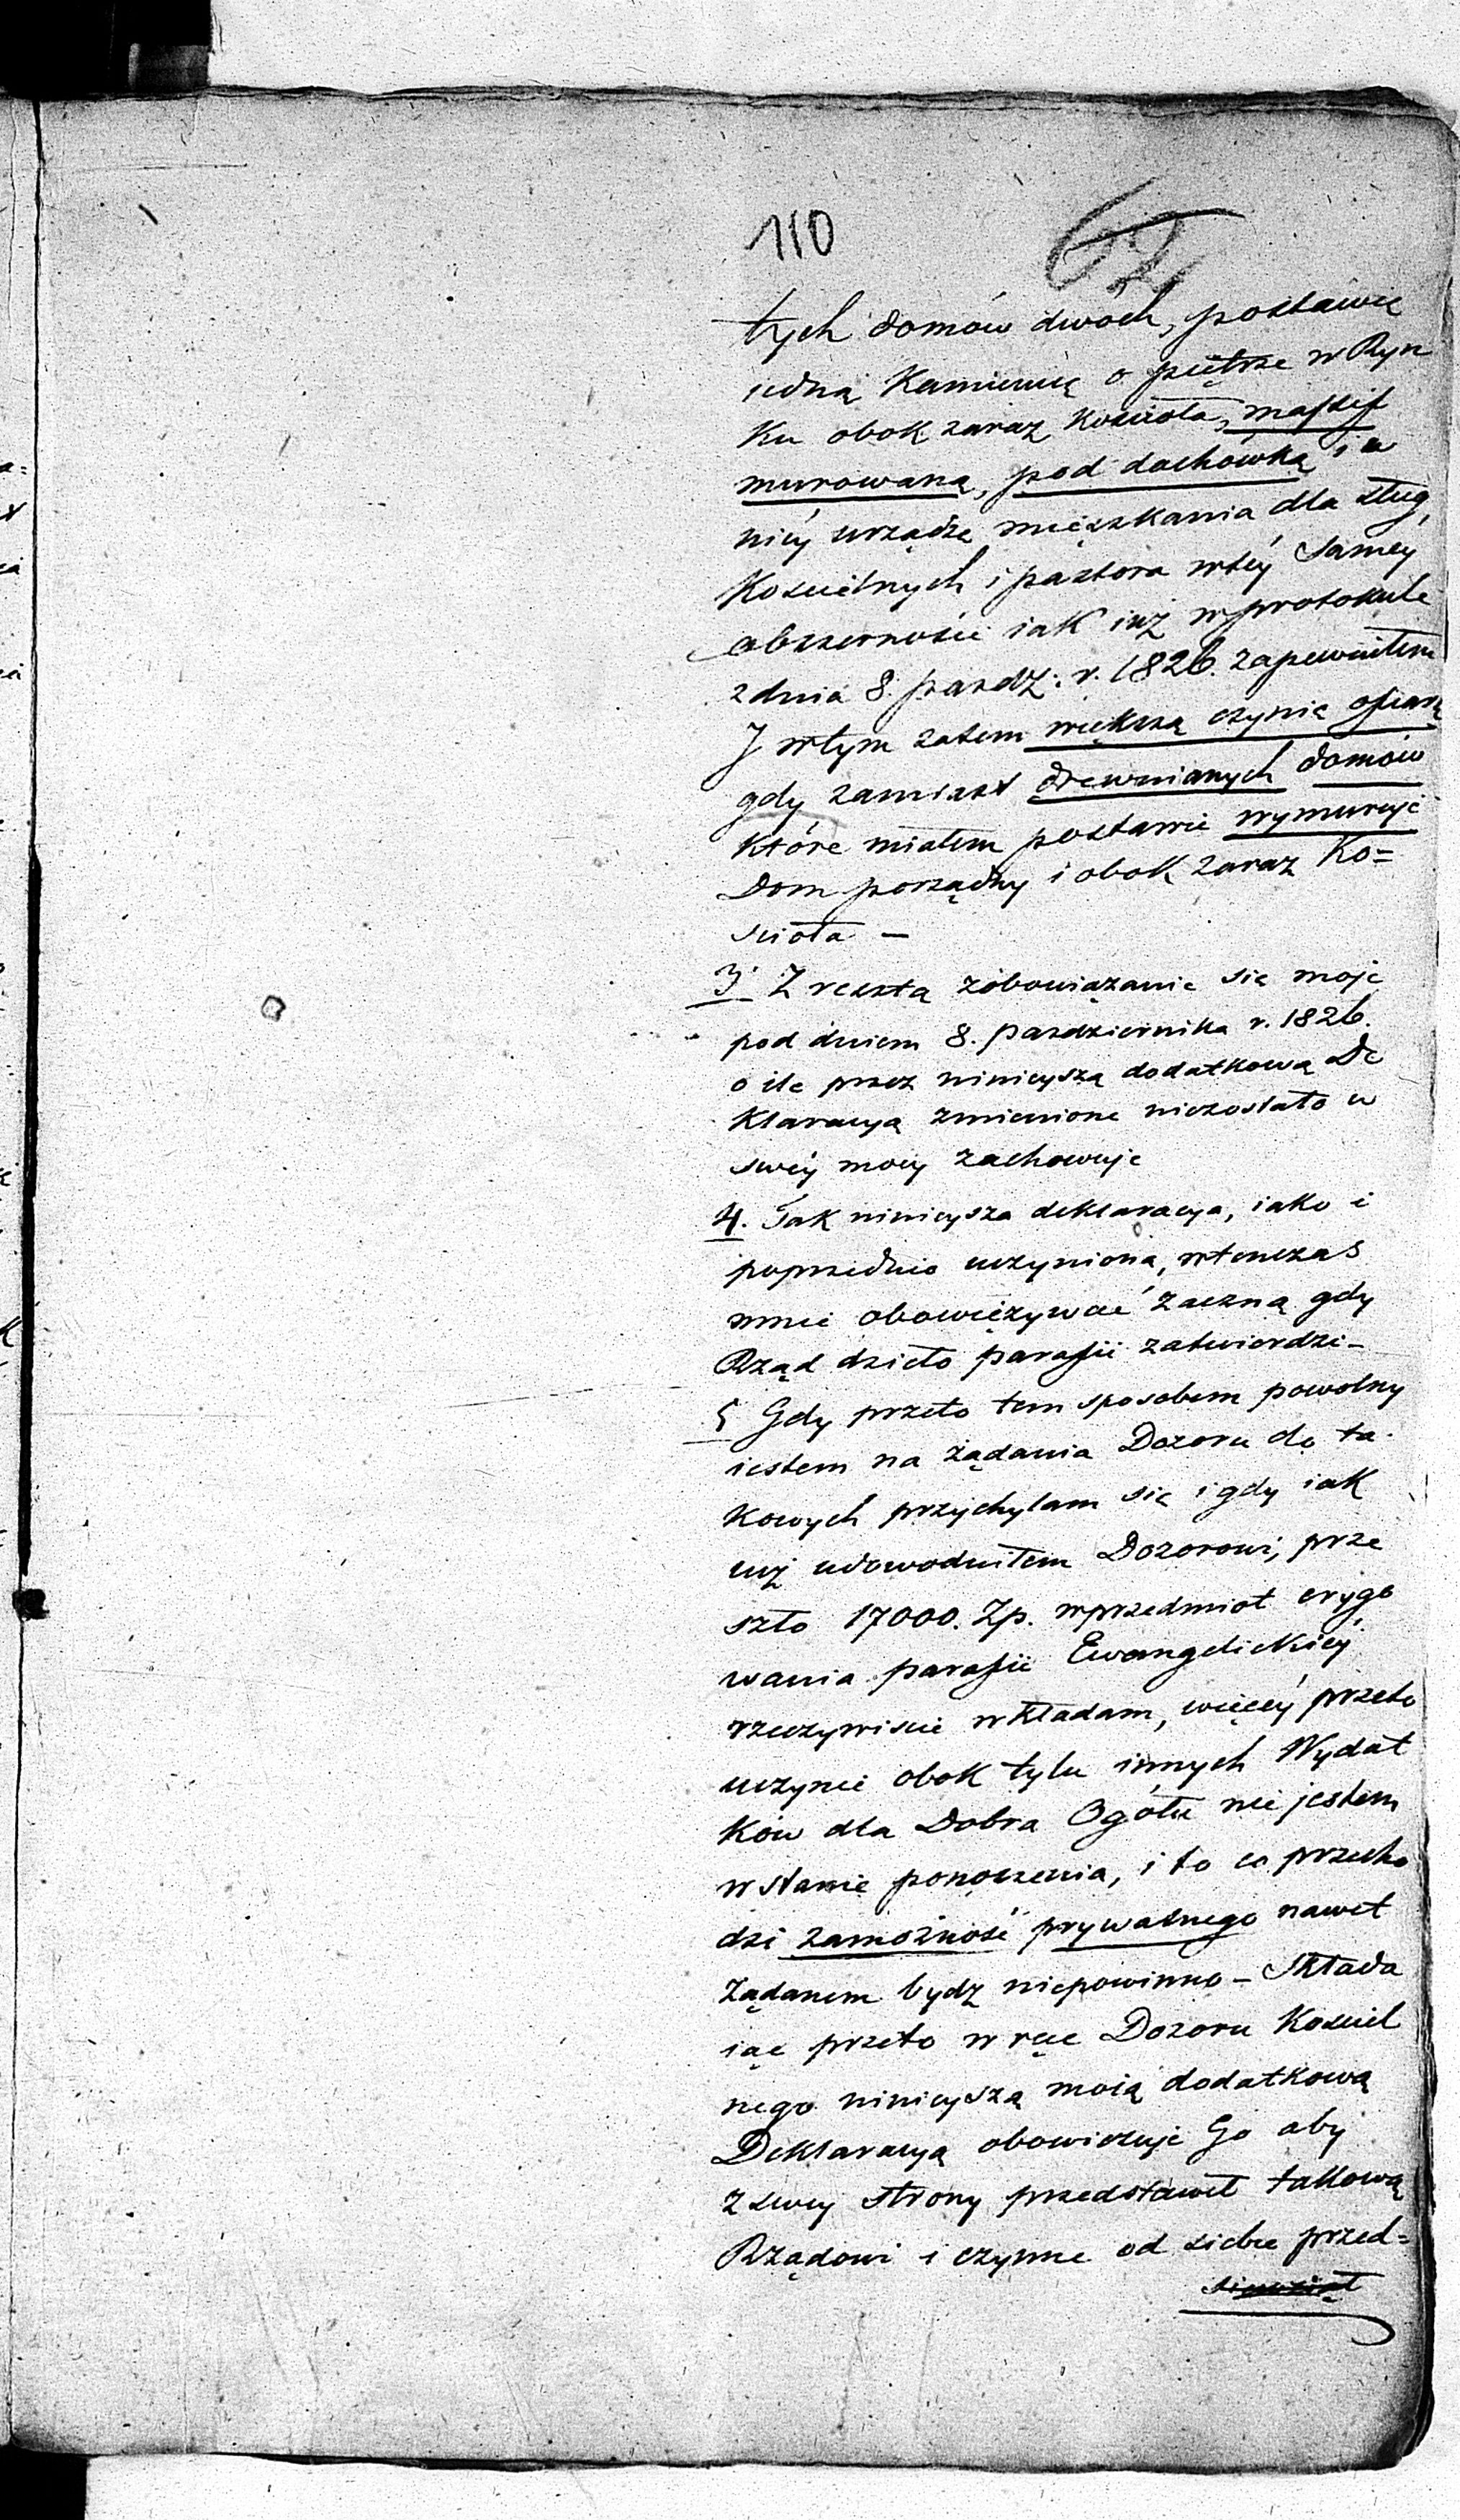 110
62
tych domów dwóch, postawię
iedną Kamienicę o piętrze w Ryn
ku obok zaraz Kościoła, massif
murowaną, pod dachówką i w
niéy urządzę mięszkania dla sług
Kościelnych i pastora w téy samey
obszerności iak iuż w protokule
z dnia 8. pazdz: r. 1826. zapewniłem
I w tym zatem większą czynię ofiarę
gdy zamiast drewnianych domów
które miałem postawić wymuruję
Dom porządny i obok zaraz Ko=
scioła —
3. Z resztą zobowiązanie się moje
pod dniem 8. Pazdziernika r. 1826.
o ile przez ninieyszą dodatkową De
klaracyą zmienione niezostało w
swéy mocy zachowuję
4. Tak ninieysza deklaracya, iako i
poprzednio uczyniona, wtenczas
mnie obowięzywać zaczną gdy
Rząd dzieło parafii zatwierdzi –
5 Gdy przeto tem sposobem powolny
iestem na żądania Dozoru do ta-
kowych przychylam się i gdy iak
iuż udowodniłem Dozorowi, prze
szło 17000. Zp. w przedmiot erygo
wania parafii Ewangelickiéy
rzeczywiscie wkładam, więcéy przeto
uczynić obok tylu innych Wydat
ków dla Dobra Ogółu nie jestem
w stanie ponoszenia, i to co przecho
dzi zamożność prywatnego nawet
żądanem bydz niepowinno – Składa
iąc przeto w ręce Dozoru Kościel
nego ninieyszą moią dodatkową
Deklaracyą obowiezuję Go aby
z swey strony przedstawił takową
Rządowi i czynne od siebie przed=
siewziął